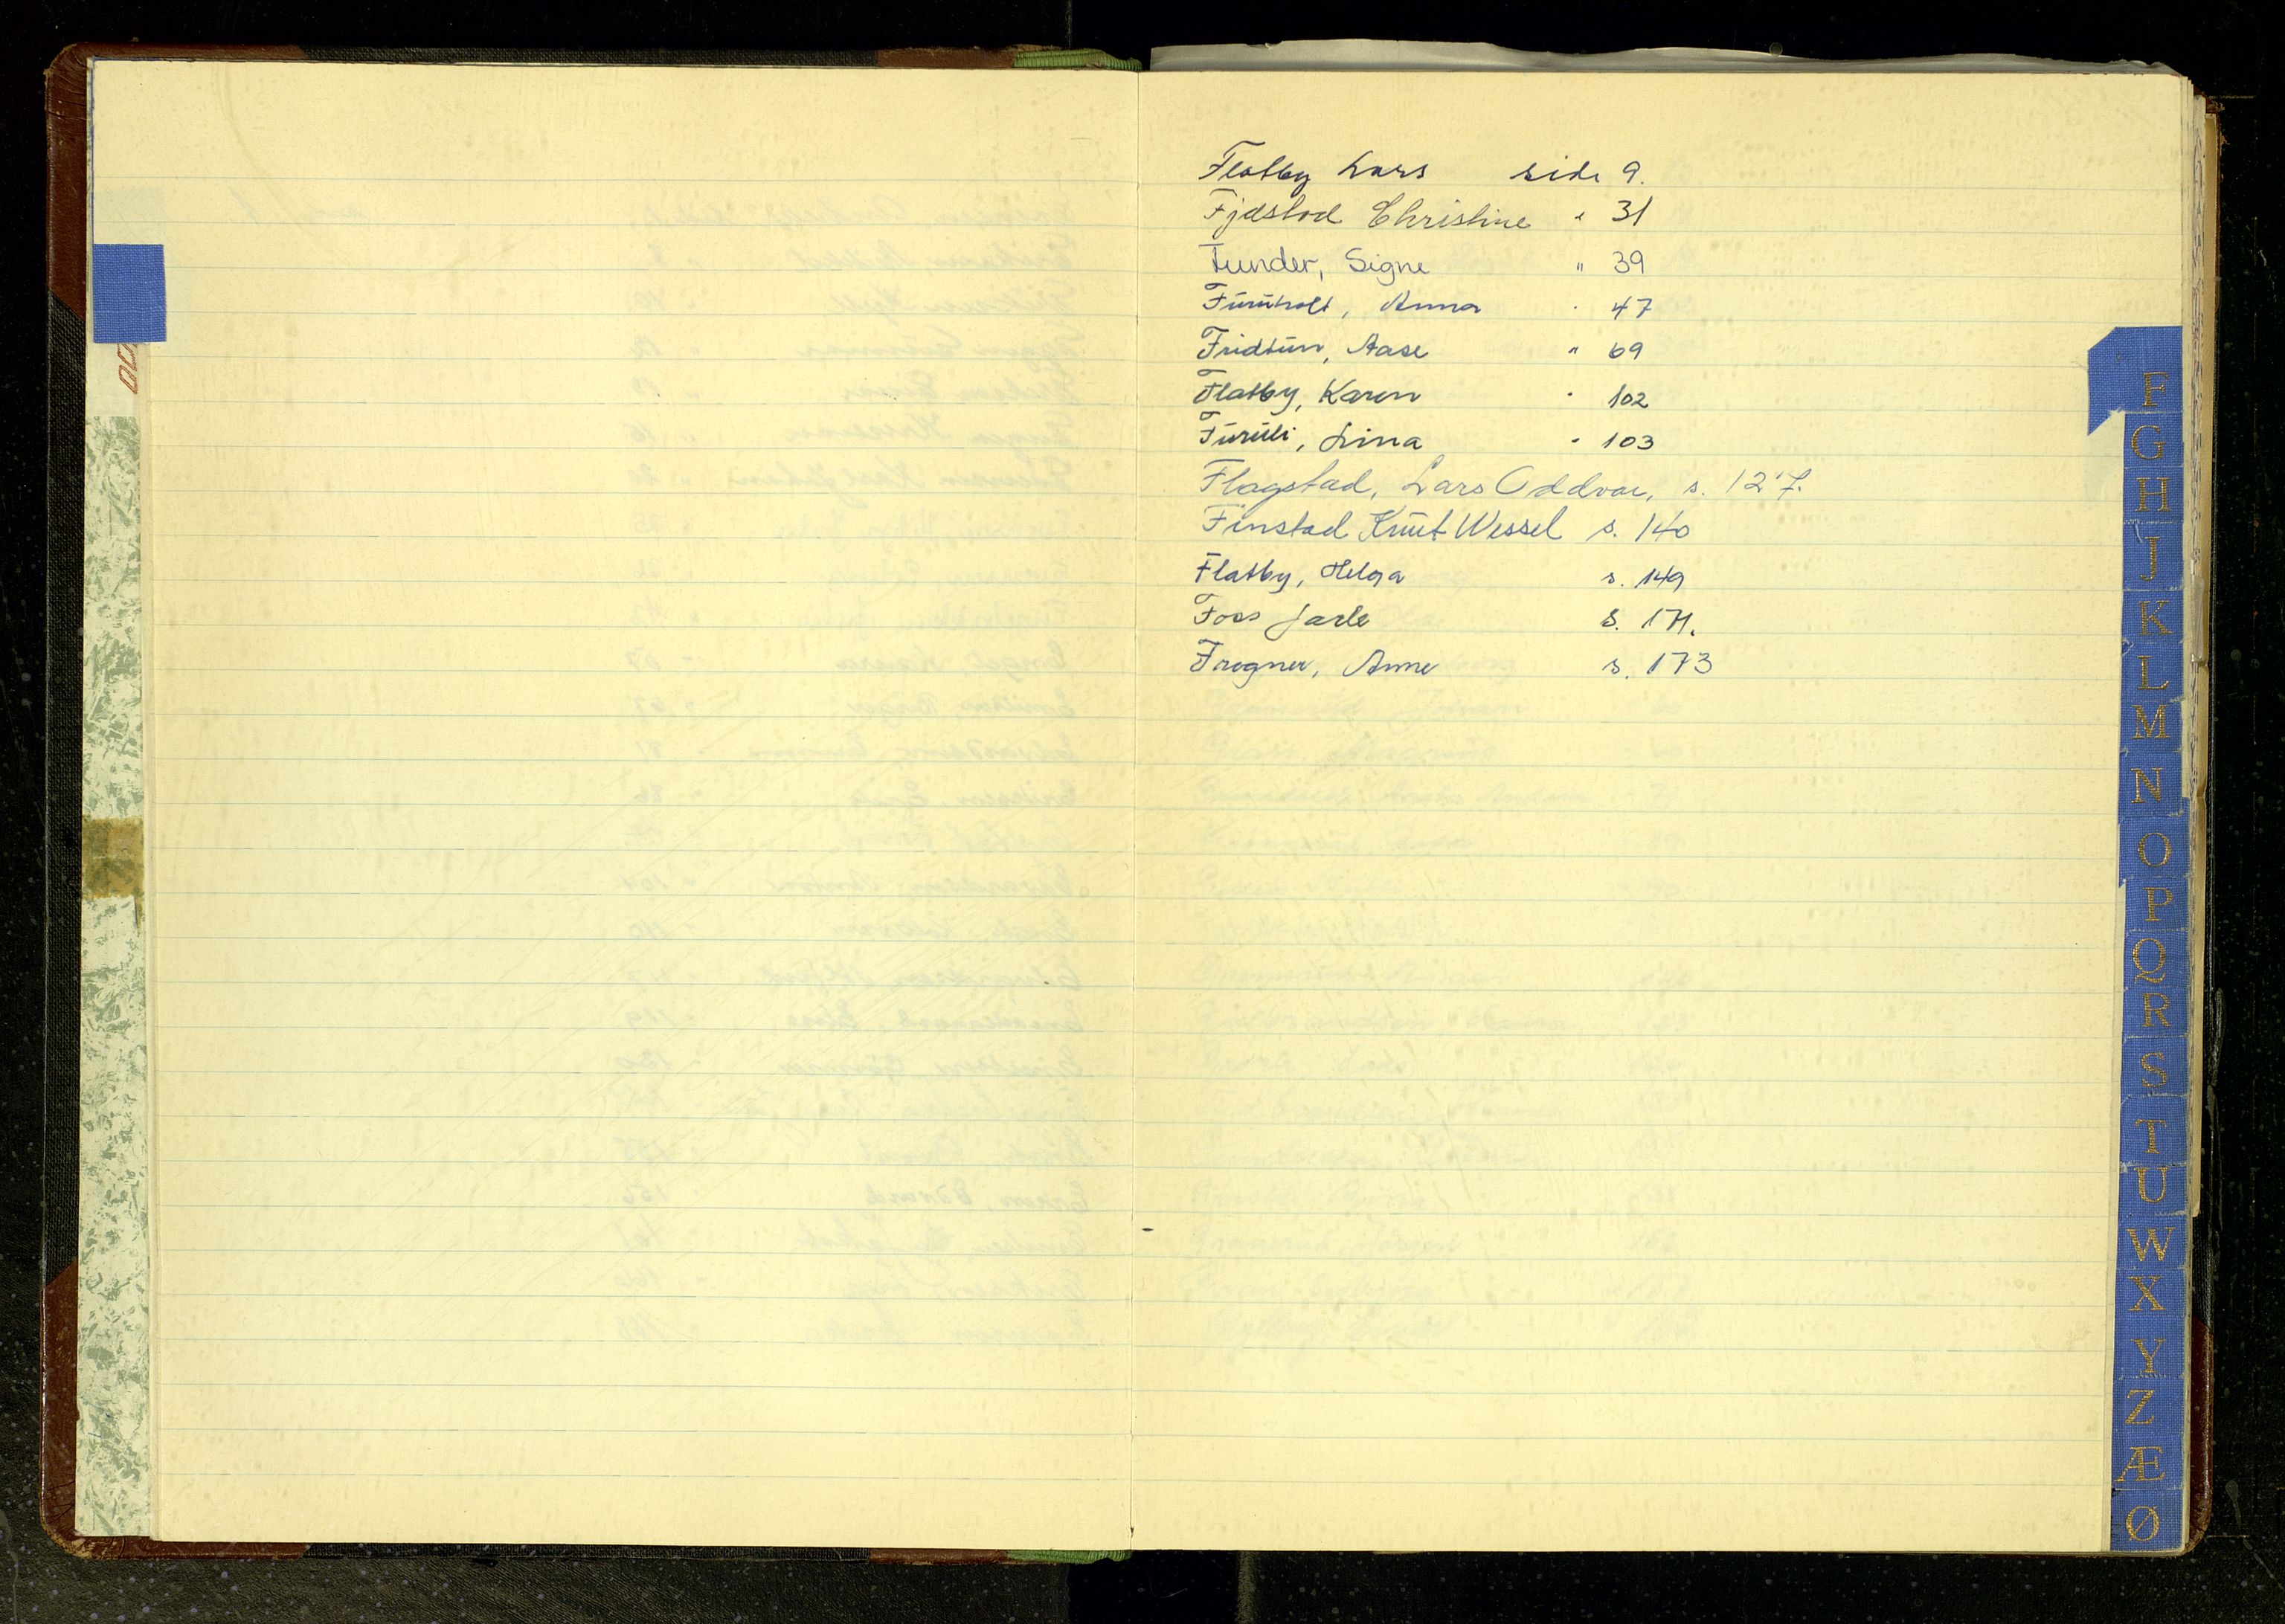 Flatby Lars side 9.
Fjelstad Christine " 31
Funder, Signe " 39
Furuholt, Anna " 47
Fridtun, Aase " 69
Flatby, Karen " 102
Furuli, Lina " 103
Flagstad, Lars Oddvar, s. 127.
Finstad Knut Wessel s. 140
Flatby, Helga s. 149
Foss Jarle s. 171.
Frogner, Anne s. 173
F
G
H
J
K
L
M
N
O
P
Q
R
S
T
U
W
X
Y
Z
Æ
Ø